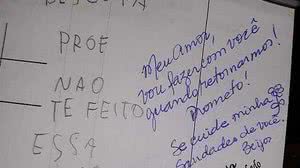 PROF
NAO
TE FEITO
ESSA
Meu Amor,
vou fazer com você
quando retornarmos!
Prometo!
Se cuide minha
saudades de você.
Beijos